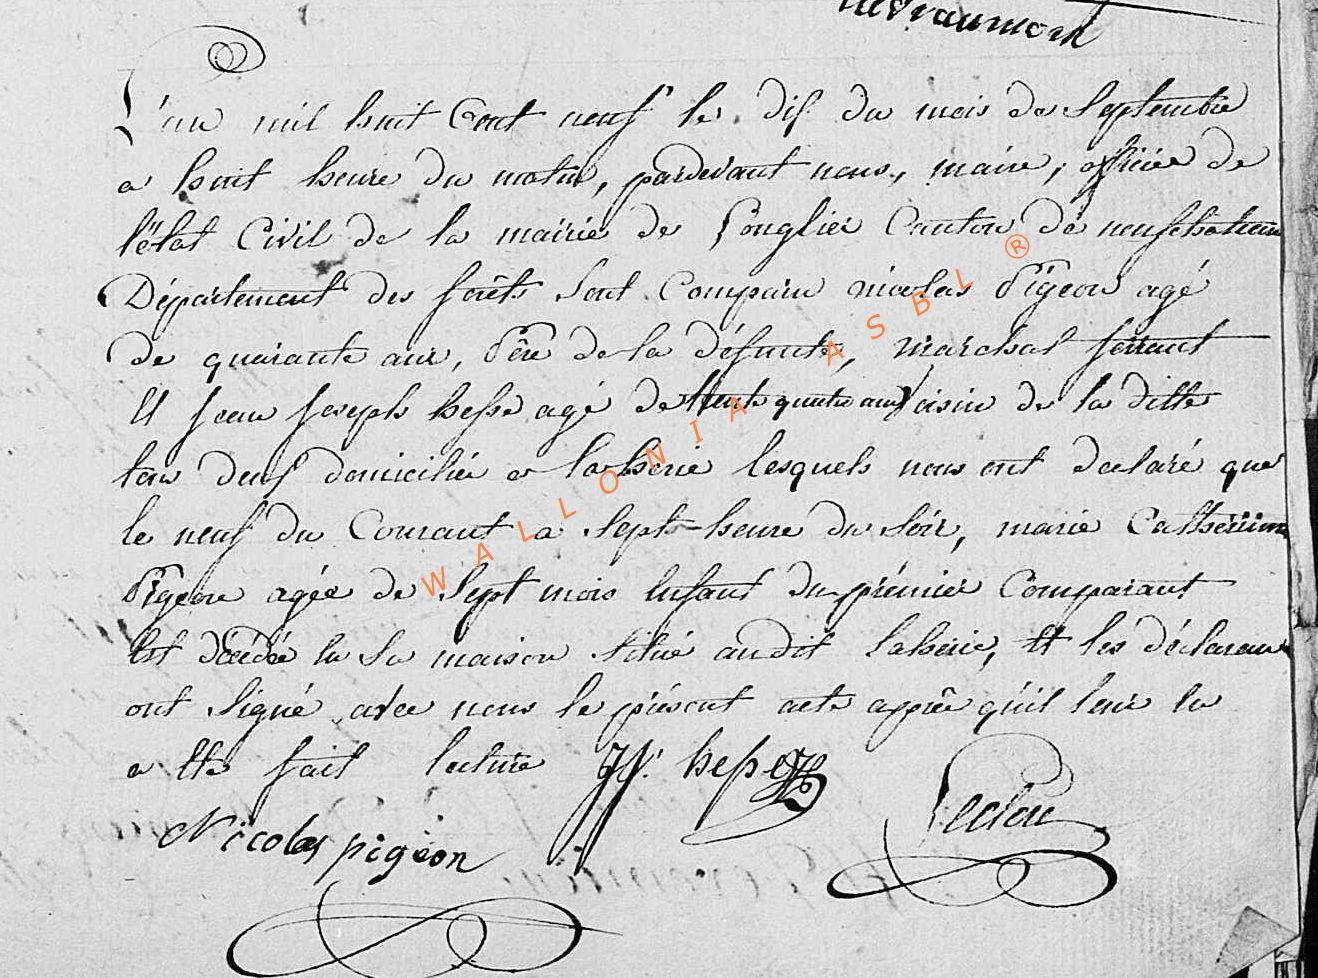 L'an mil huit Cent neuf le dix du mois de Septembre
a huit heure du matin, pardevant nous, maire, officier de
l'état Civil de la mairie de Longlier Canton de neufchateau
Département des forêts sont Comparu nicolas Pigeon agé
de quarante ans, Pêre de la défunte, marchal ferrant
Et jean joseph hesse agé de trente quatre ans Voisin de la ditte
tous deux domicilié a laherie lesquels nous ont declaré que
le neuf du Courant a Sept heure du Soir, marie Catherinne
Pigeon agée de Sept mois Enfant du prémier Comparant
Est décédée en Sa maison Situé audit laherie, Et les déclarans
ont Signé avec nous le présent acte apprês qu'il leur en
a Ete fait lecture JJ. hesse
Leclere
Nicolas pigeon
WALLONIA ASBL ®